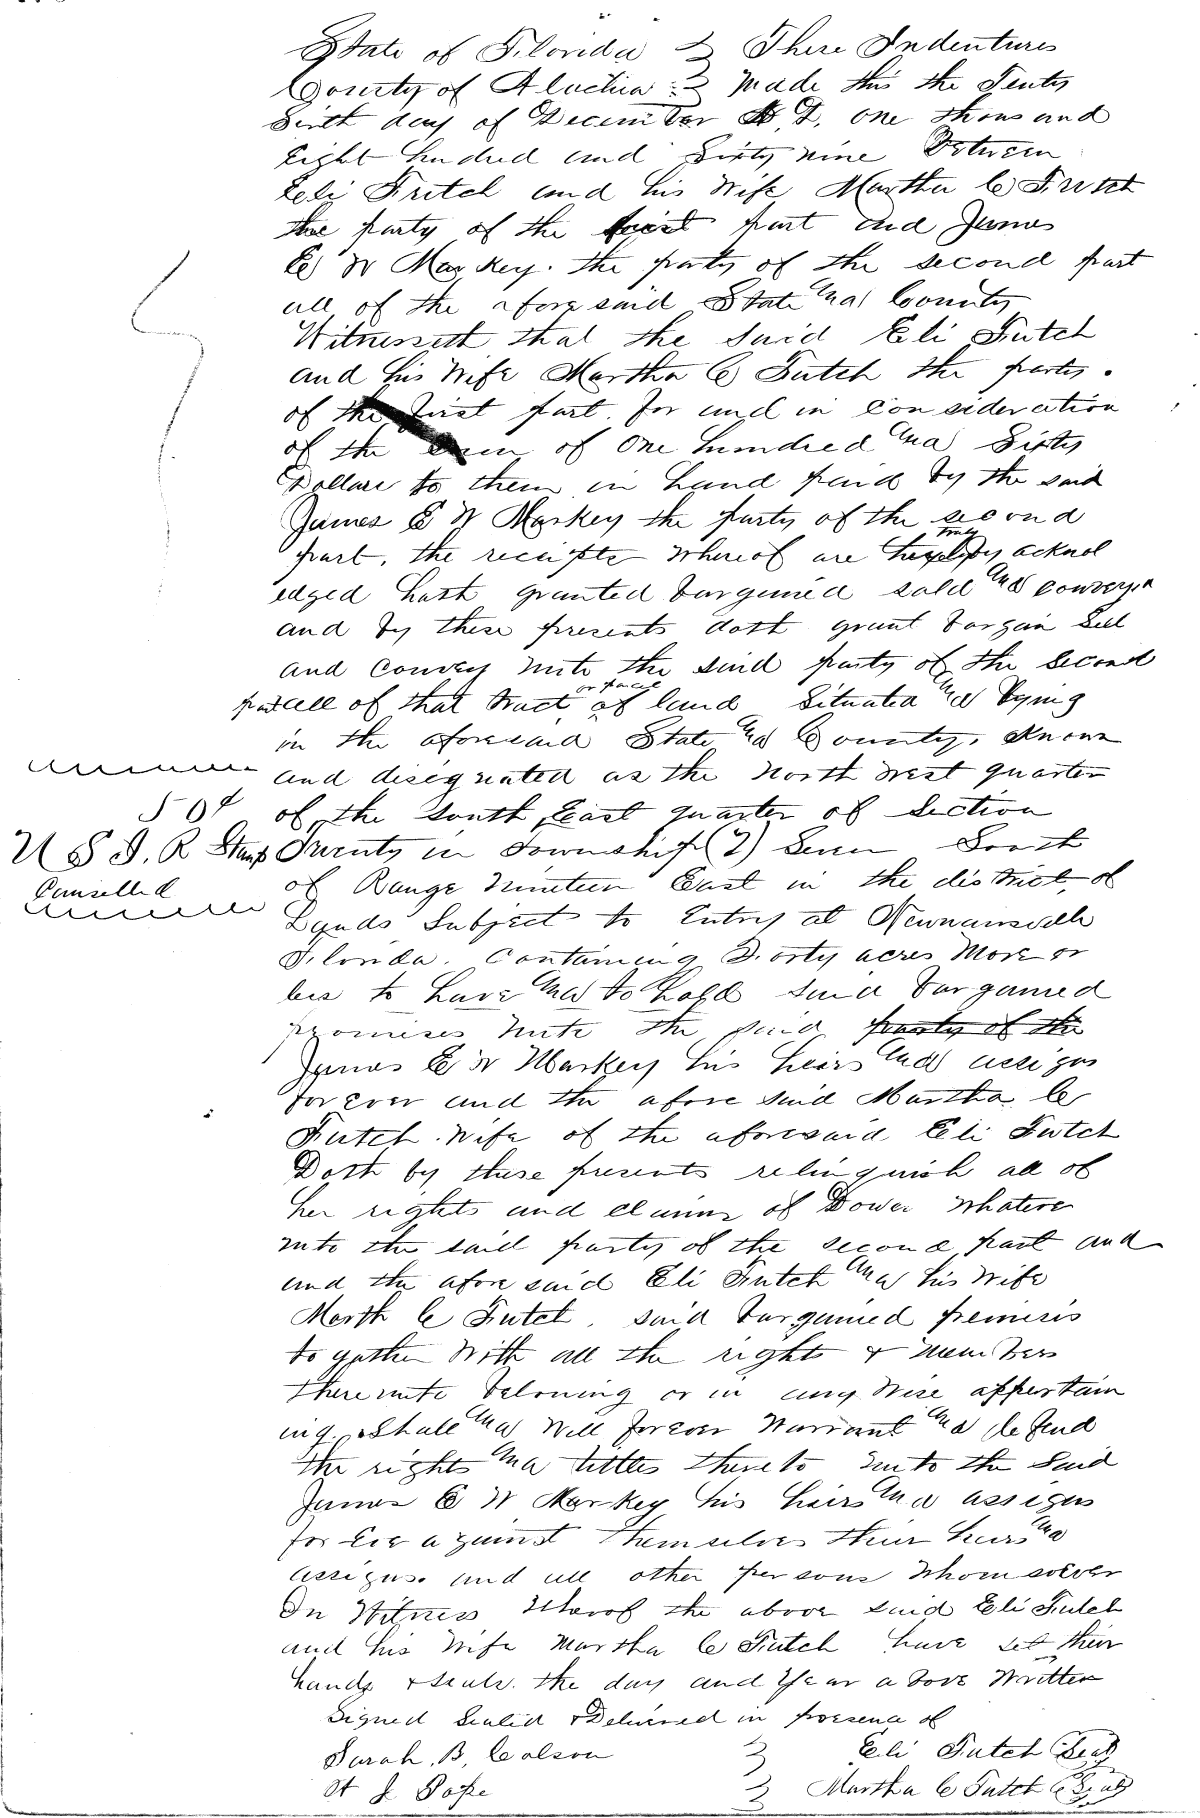 State of Florida } These Indentures
County of Alachua } made this the Tenty
Sixth day of December A. D. one thousand
Eight hundred and Sixty nine Between
Eli Futch and his Wife Martha C Futch
the party of the first part and James
E W Markey. the party of the second part
all of the aforesaid State and County
Witnesseth that the Said Eli Futch
and his Wife Martha C Futch the partys.
of the first part. for and in Consideration
of the Sum of One hundred and Sixty
Dollars to them in hand paid by the said
James E W Markey the party of the second
part, the receipts whereof are hereby acknol
edged hath granted bargained sold and conveyed
and by these presents doth grant bargain Sell
and Convey unto the said party of the Second
part all of that tract or parcel of land Situated and Lying
in the aforesaid State and County, Known
and desegnated as the North West quarter
of the South East quarter of Section
50¢
U S I. R Stamp
Cancelled
Twenty in Township (7) Seven South
of Range Nineteen East in the district of
Lands Subject to Entry at Newnansville
Florida. Containing Forty acres More or
less to have and to hold said bargained
promises unto the said party of the
James E W Markey his heirs and assigns
for ever and the afore said Martha C
Futch. Wife of the aforesaid Eli Futch
Doth by these presents relinquish all of
her rights and claims of Dower whatever
unto the said party of the second part and
and the afore said Eli Futch and his Wife
Marth C Futch. said bargained premises
to gather With all the rights & members
there unto beloning or in any Wise appertain
ing. Shall and Will forever Warrant and defend
the rights and tittles thereto unto the Said
James E W Markey his heirs and assigns
for Ever against themselves their heirs and
assigns. and all other persons Whomsoever
In Witness Wherof the above said Eli Futch
and his Wife Martha C Futch have set their
hands & seals. the day and Year above Written
Signed Sealed & Delivered in presence of
Sarah. B. Colson } Eli Futch (Seal)
W J Pope } Martha C Futch (Seal)